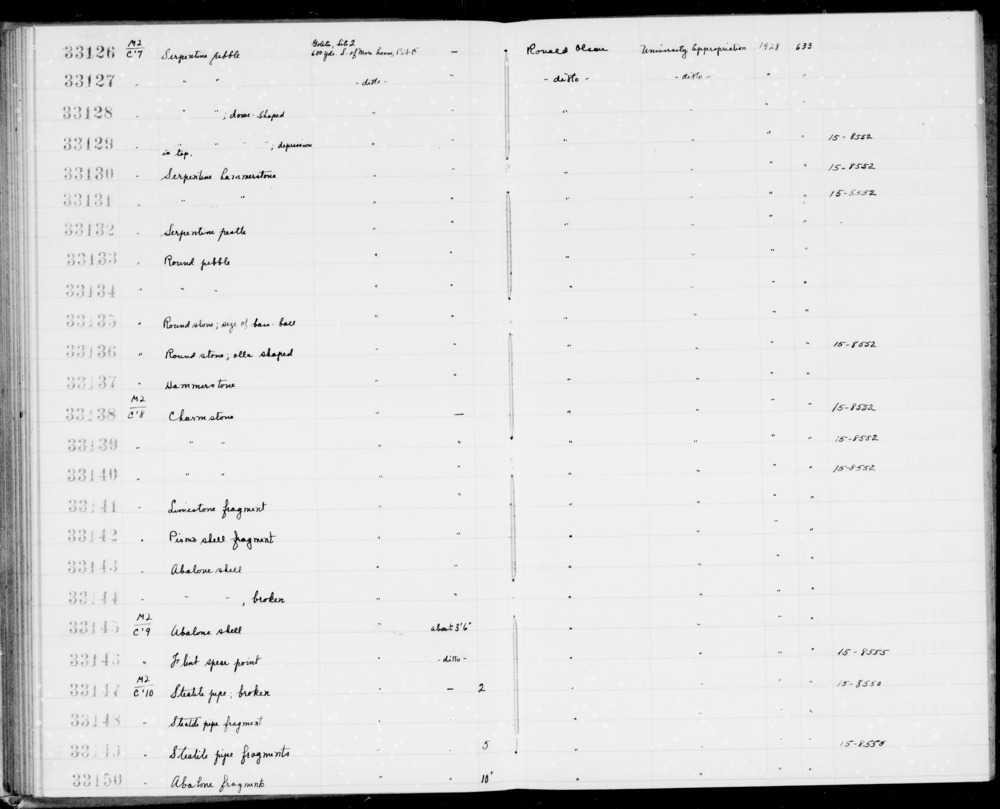 33126 M2 C'7 Serpentine pebble Goleta, Site 2 600 yds. S. of More house, Pit C' — Ronald Olson University Appropriation 1928 633
33127 " " " - ditto - " - ditto - - ditto - " "
33128 " " " ; dome-shaped " " " " " "
33129 " " " " " ; depression in top. " " " " " " 15-8552
33130 " Serpentine hammerstone " " " " " " 15-8552
33131 " " " " " " " " " 15-8552
33132 " Serpentine pestle " " " " " "
33133 " Round pebble " " " " " "
33134 " " " " " " " " "
33135 " Round stone; size of base-ball " " " " " "
33136 " Round stone, olla shaped " " " " " " 15-8552
33137 " Hammerstone " " " " " "
33138 M2 C'8 Charmstone " — " " " " 15-8552
33139 " " " " " " " " 15-8552
33140 " " " " " " " " 15-8552
33141 " Limestone fragment " " " " "
33142 " Pismo shell fragment " " " " " "
33143 " Abalone shell " " " " " "
33144 " " " , broken " " " " " "
33145 M2 C'9 Abalone shell " about 3'6" " " " "
33146 " Flint spear point " - ditto - " " " " 15-8555
33147 M2 C'10 Steatite pipe; broken " — 2 " " " " 15-8550
33148 " Steatite pipe fragment " " " " " "
33149 " Steatite pipe fragments " " 5 " " " " 15-8550
33150 " Abalone fragments " " 10 " " " "